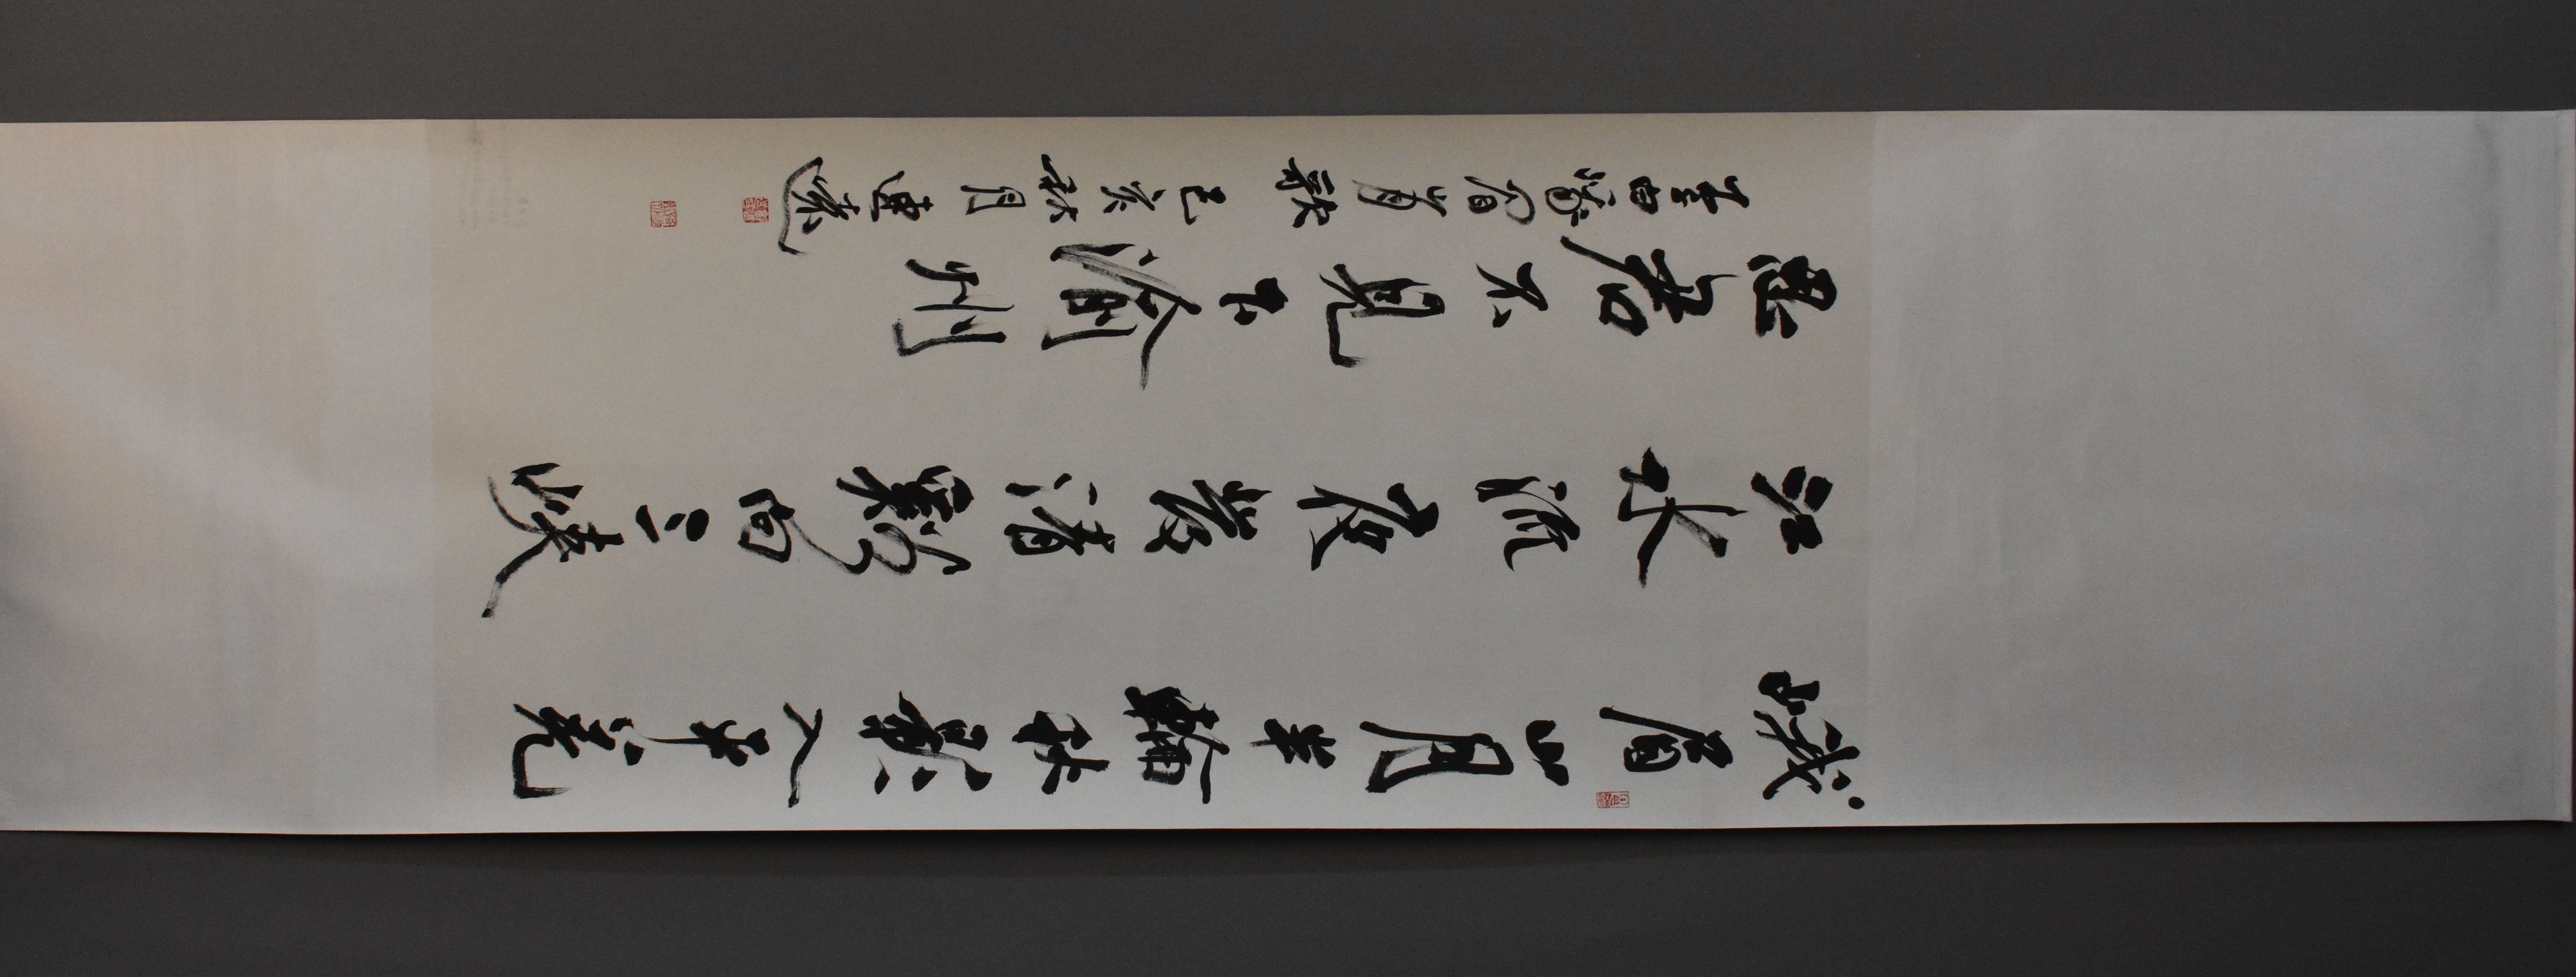 峨眉山月半輪秋影入平羌
江水流夜發清谿向三峽
思君不見下渝州
李白峨眉山月歌 己亥秋月建